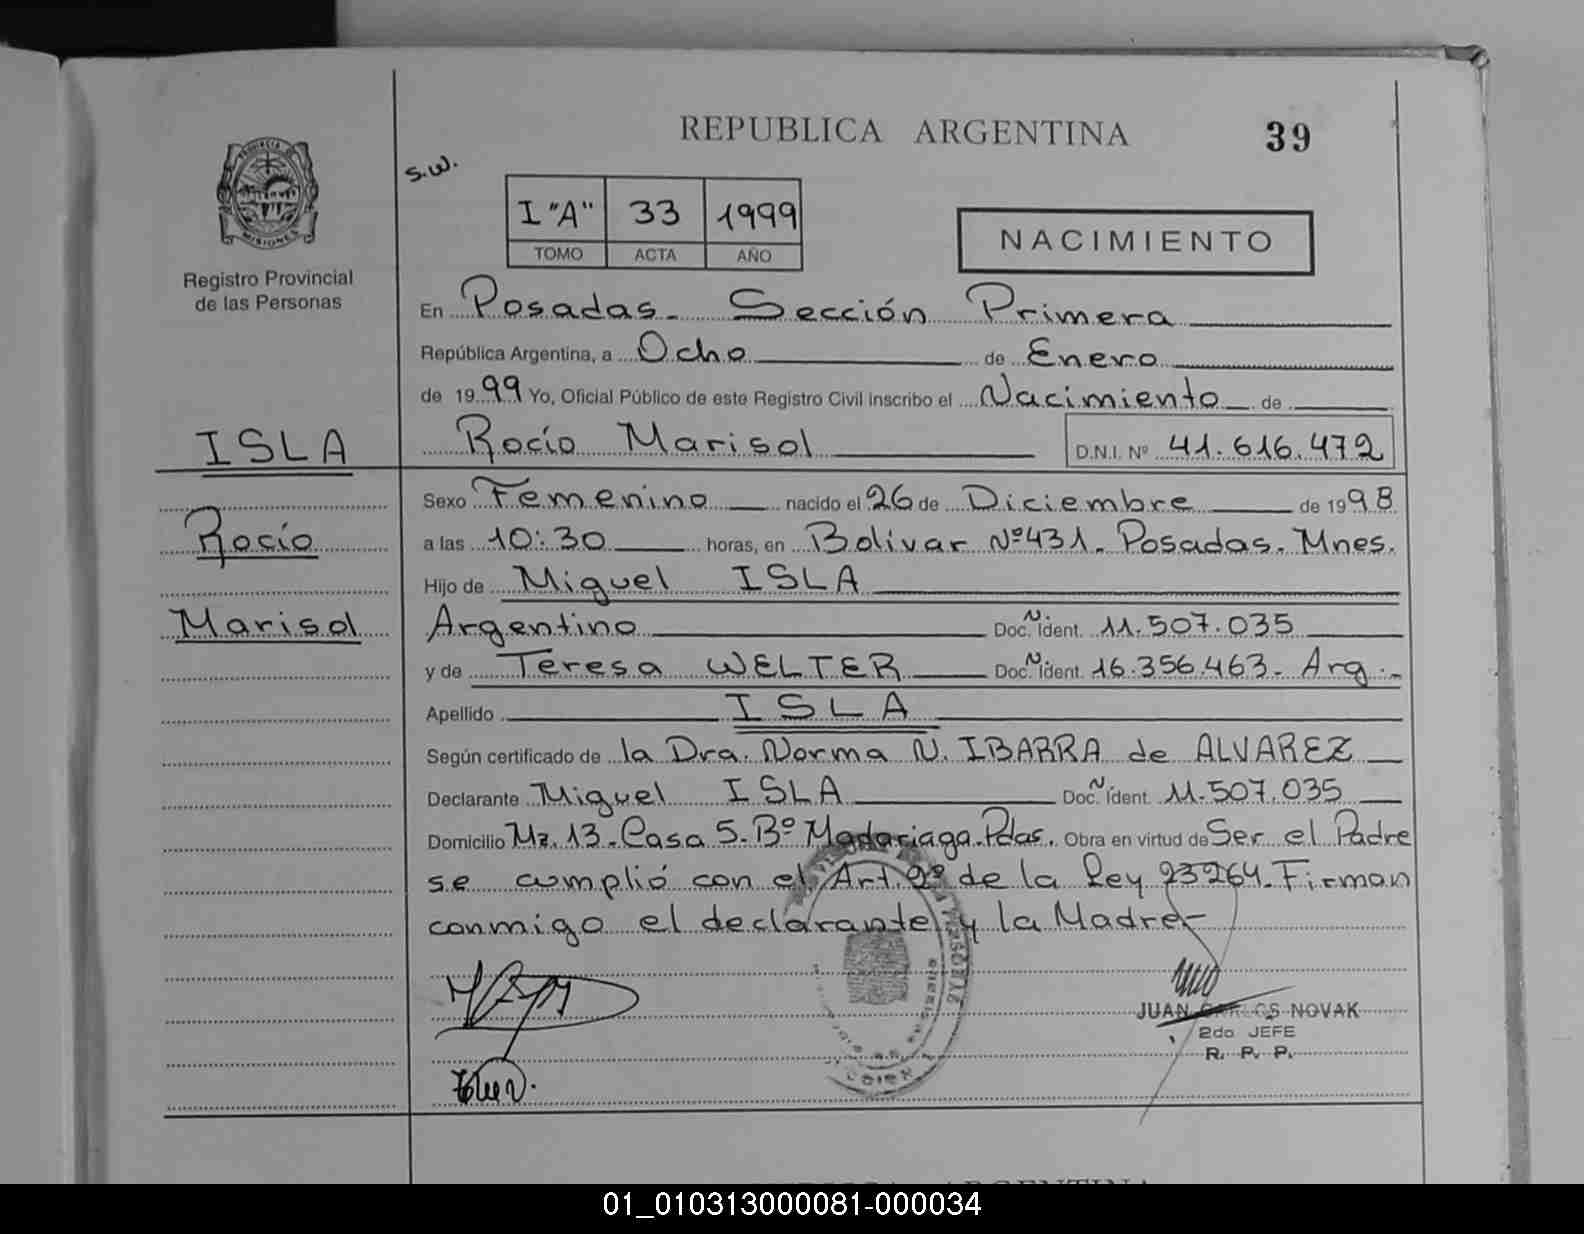 REPUBLICA ARGENTINA
39
S.W.
PROVINCIA DE
MISIONES
Registro Provincial
de las Personas
I "A" 33 1999
TOMO ACTA AÑO
NACIMIENTO
En Posadas. Sección Primera
República Argentina, a Ocho de Enero
de 1999 Yo, Oficial Público de este Registro Civil inscribo el Nacimiento de
ISLA
Rocío Marisol D.N.I. Nº 41.616.472
Rocío
Marisol
Sexo Femenino nacido el 26 de Diciembre de 1998
a las 10:30 horas, en Bolivar Nº431. Posadas. Mnes.
Hijo de Miguel ISLA
Argentino Doc. Ñ. Ident. 11.507.035
y de Teresa WELTER Doc. Ñ. Ident. 16.356.463. Arg.-
Apellido ISLA
Según certificado de la Dra. Norma N. IBARRA de ALVAREZ
Declarante Miguel ISLA Doc. Ñ. Ident. 11.507.035
Domicilio Mz. 13. Casa 5. Bº Madariaga. Pdas. Obra en virtud de Ser el Padre
se cumplió con el Art. 2º de la Ley 23264. Firman
conmigo el declarante y la Madre-
JUAN CARLOS NOVAK
2do JEFE
R. P. P.
01_010313000081-000034